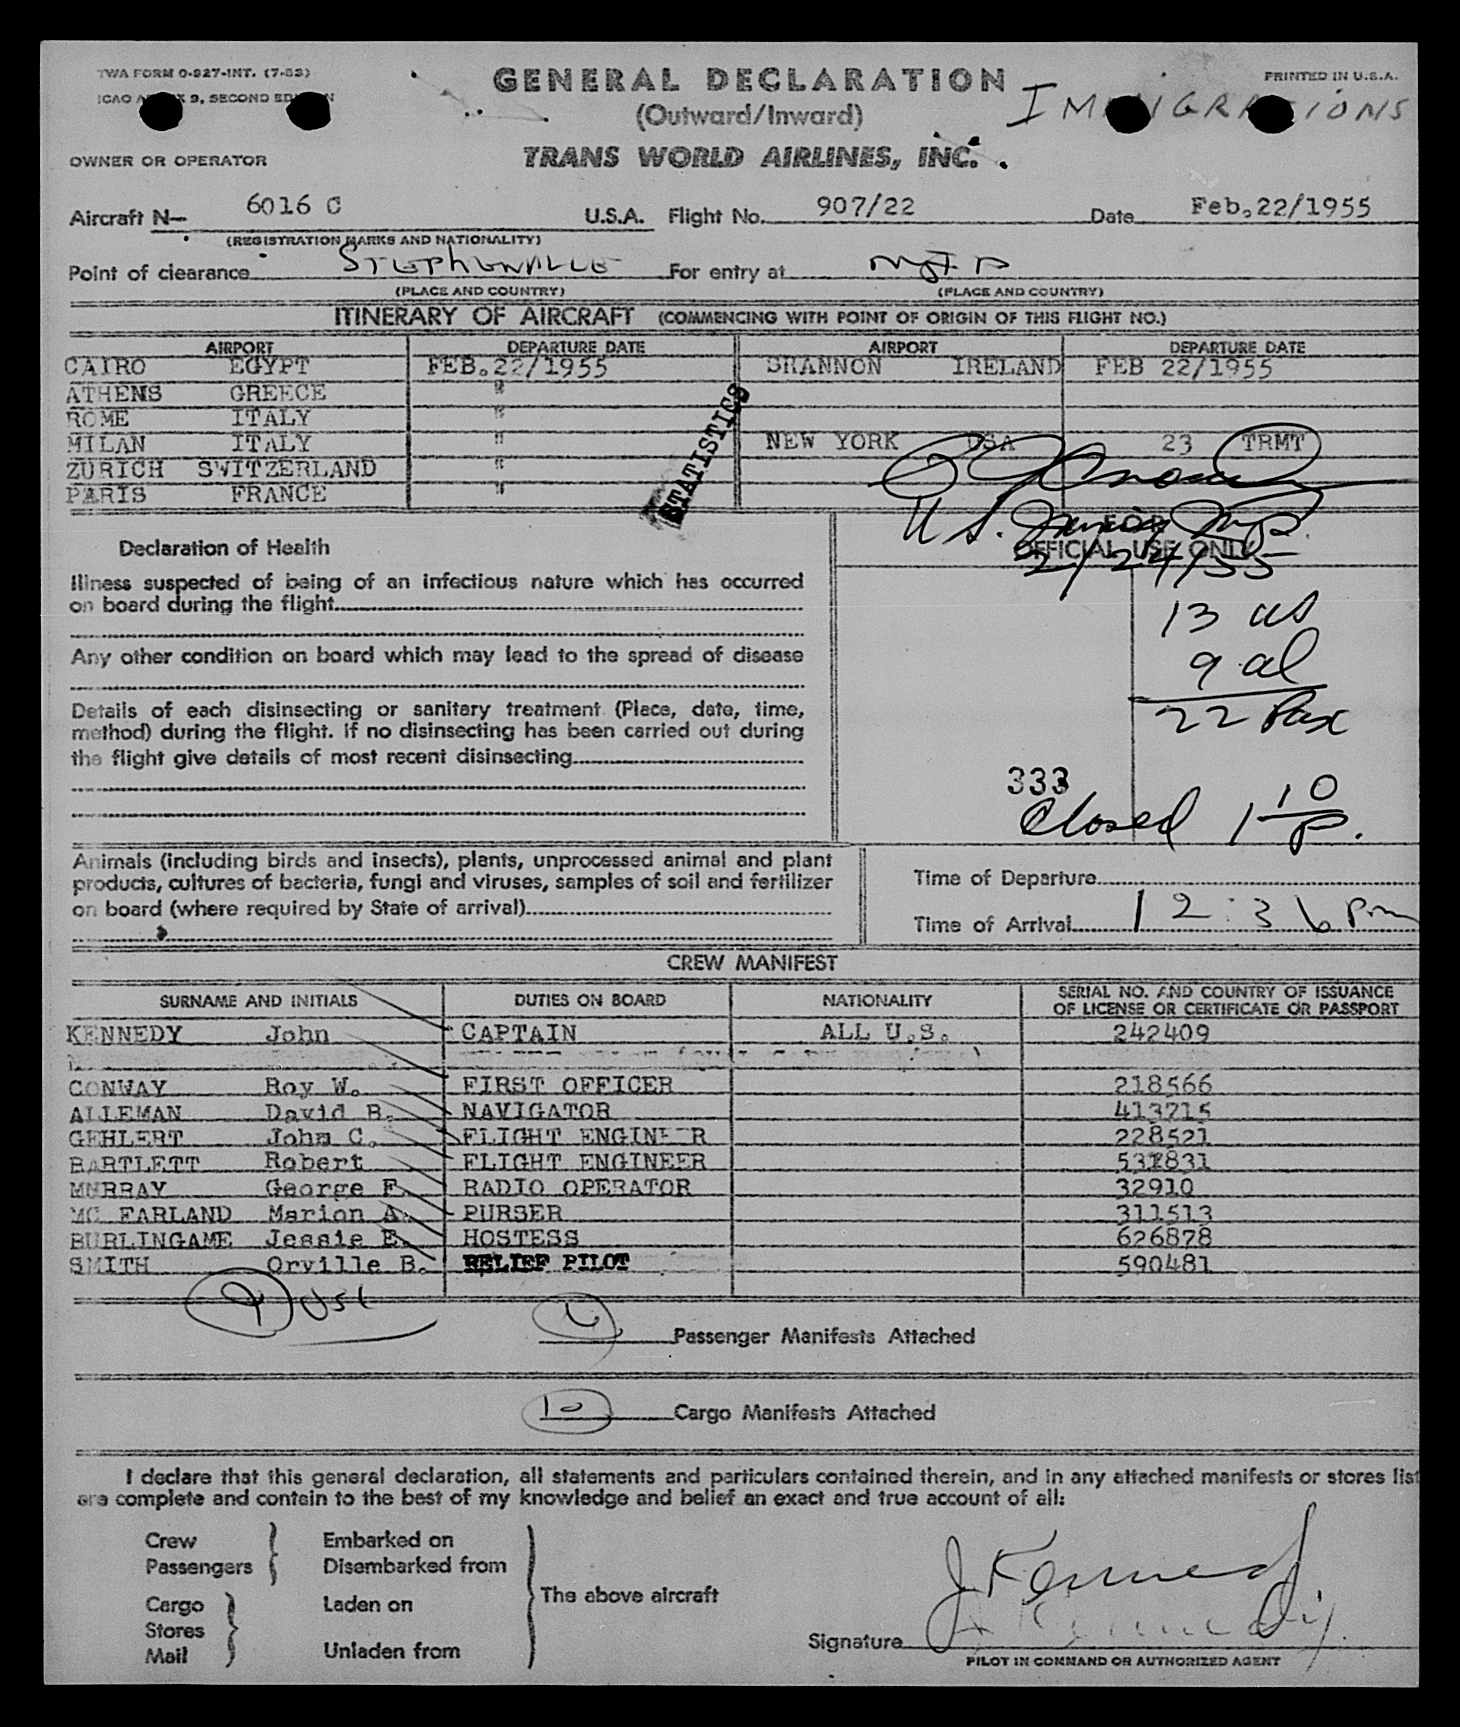 TWA FORM 0-927-INT. (7-53)
GENERAL DECLARATION
PRINTED IN U.S.A.
ICAO 9, SECOND
(Outward/Inward)
OWNER OR OPERATOR
TRANS WORLD AIRLINES, INC.
Aircraft N— 6016 C U.S.A. Flight No. 907/22 Date Feb.22/1955
(REGISTRATION MARKS AND NATIONALITY)
Point of clearance STEPHENVILLE For entry at
(PLACE AND COUNTRY) (PLACE AND COUNTRY)
ITINERARY OF AIRCRAFT (COMMENCING WITH POINT OF ORIGIN OF THIS FLIGHT NO.)
AIRPORT DEPARTURE DATE AIRPORT DEPARTURE DATE
CAIRO EGYPT FEB.22/1955 SHANNON IRELAND FEB 22/1955
ATHENS GREECE "
ROME ITALY "
MILAN ITALY " NEW YORK USA 23 TRMT
ZURICH SWITZERLAND "
PARIS FRANCE "
STATISTICS
U.S.
FOR
OFFICIAL USE ONLY
2/24/55
Declaration of Health
Illness suspected of being of an infectious nature which has occurred
on board during the flight
Any other condition on board which may lead to the spread of disease
Details of each disinsecting or sanitary treatment (Place, date, time,
method) during the flight. If no disinsecting has been carried out during
the flight give details of most recent disinsecting
13 us
9 al
22 Pax
333
Closed 1 10 P.
Animals (including birds and insects), plants, unprocessed animal and plant
products, cultures of bacteria, fungi and viruses, samples of soil and fertilizer
on board (where required by State of arrival)
Time of Departure
Time of Arrival 12:36 pm
CREW MANIFEST
SURNAME AND INITIALS DUTIES ON BOARD NATIONALITY SERIAL NO. AND COUNTRY OF ISSUANCE
OF LICENSE OR CERTIFICATE OR PASSPORT
KENNEDY John CAPTAIN ALL U.S. 242409
CONWAY Roy W. FIRST OFFICER 218566
ALLEMAN David B. NAVIGATOR 413715
GEHLERT John C. FLIGHT ENGINEER 228521
BARTLETT Robert FLIGHT ENGINEER 531831
MURRAY George F. RADIO OPERATOR 32910
MC FARLAND Marion A. PURSER 311513
BURLINGAME Jessie E. HOSTESS 626878
SMITH Orville B. RELIEF PILOT 590481
9 USC
Passenger Manifests Attached
10 Cargo Manifests Attached
I declare that this general declaration, all statements and particulars contained therein, and in any attached manifests or stores list
are complete and contain to the best of my knowledge and belief an exact and true account of all:
Crew
Passengers
Embarked on
Disembarked from
Cargo
Stores
Mail
Laden on
Unladen from
The above aircraft
J Kennedy
Signature
PILOT IN COMMAND OR AUTHORIZED AGENT